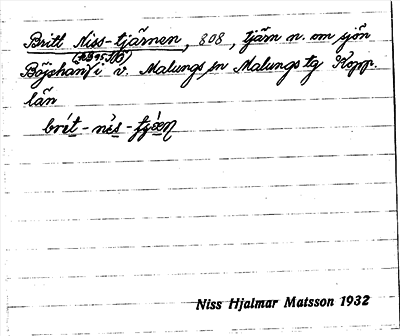 Britt Niss-tjärnen, 808, tjärn n. om sjön
Böjshan i v. Malungs sn Malungs tg Kopp.
län
brét - nès - tjàɛn
Niss Hjalmar Matsson 1932